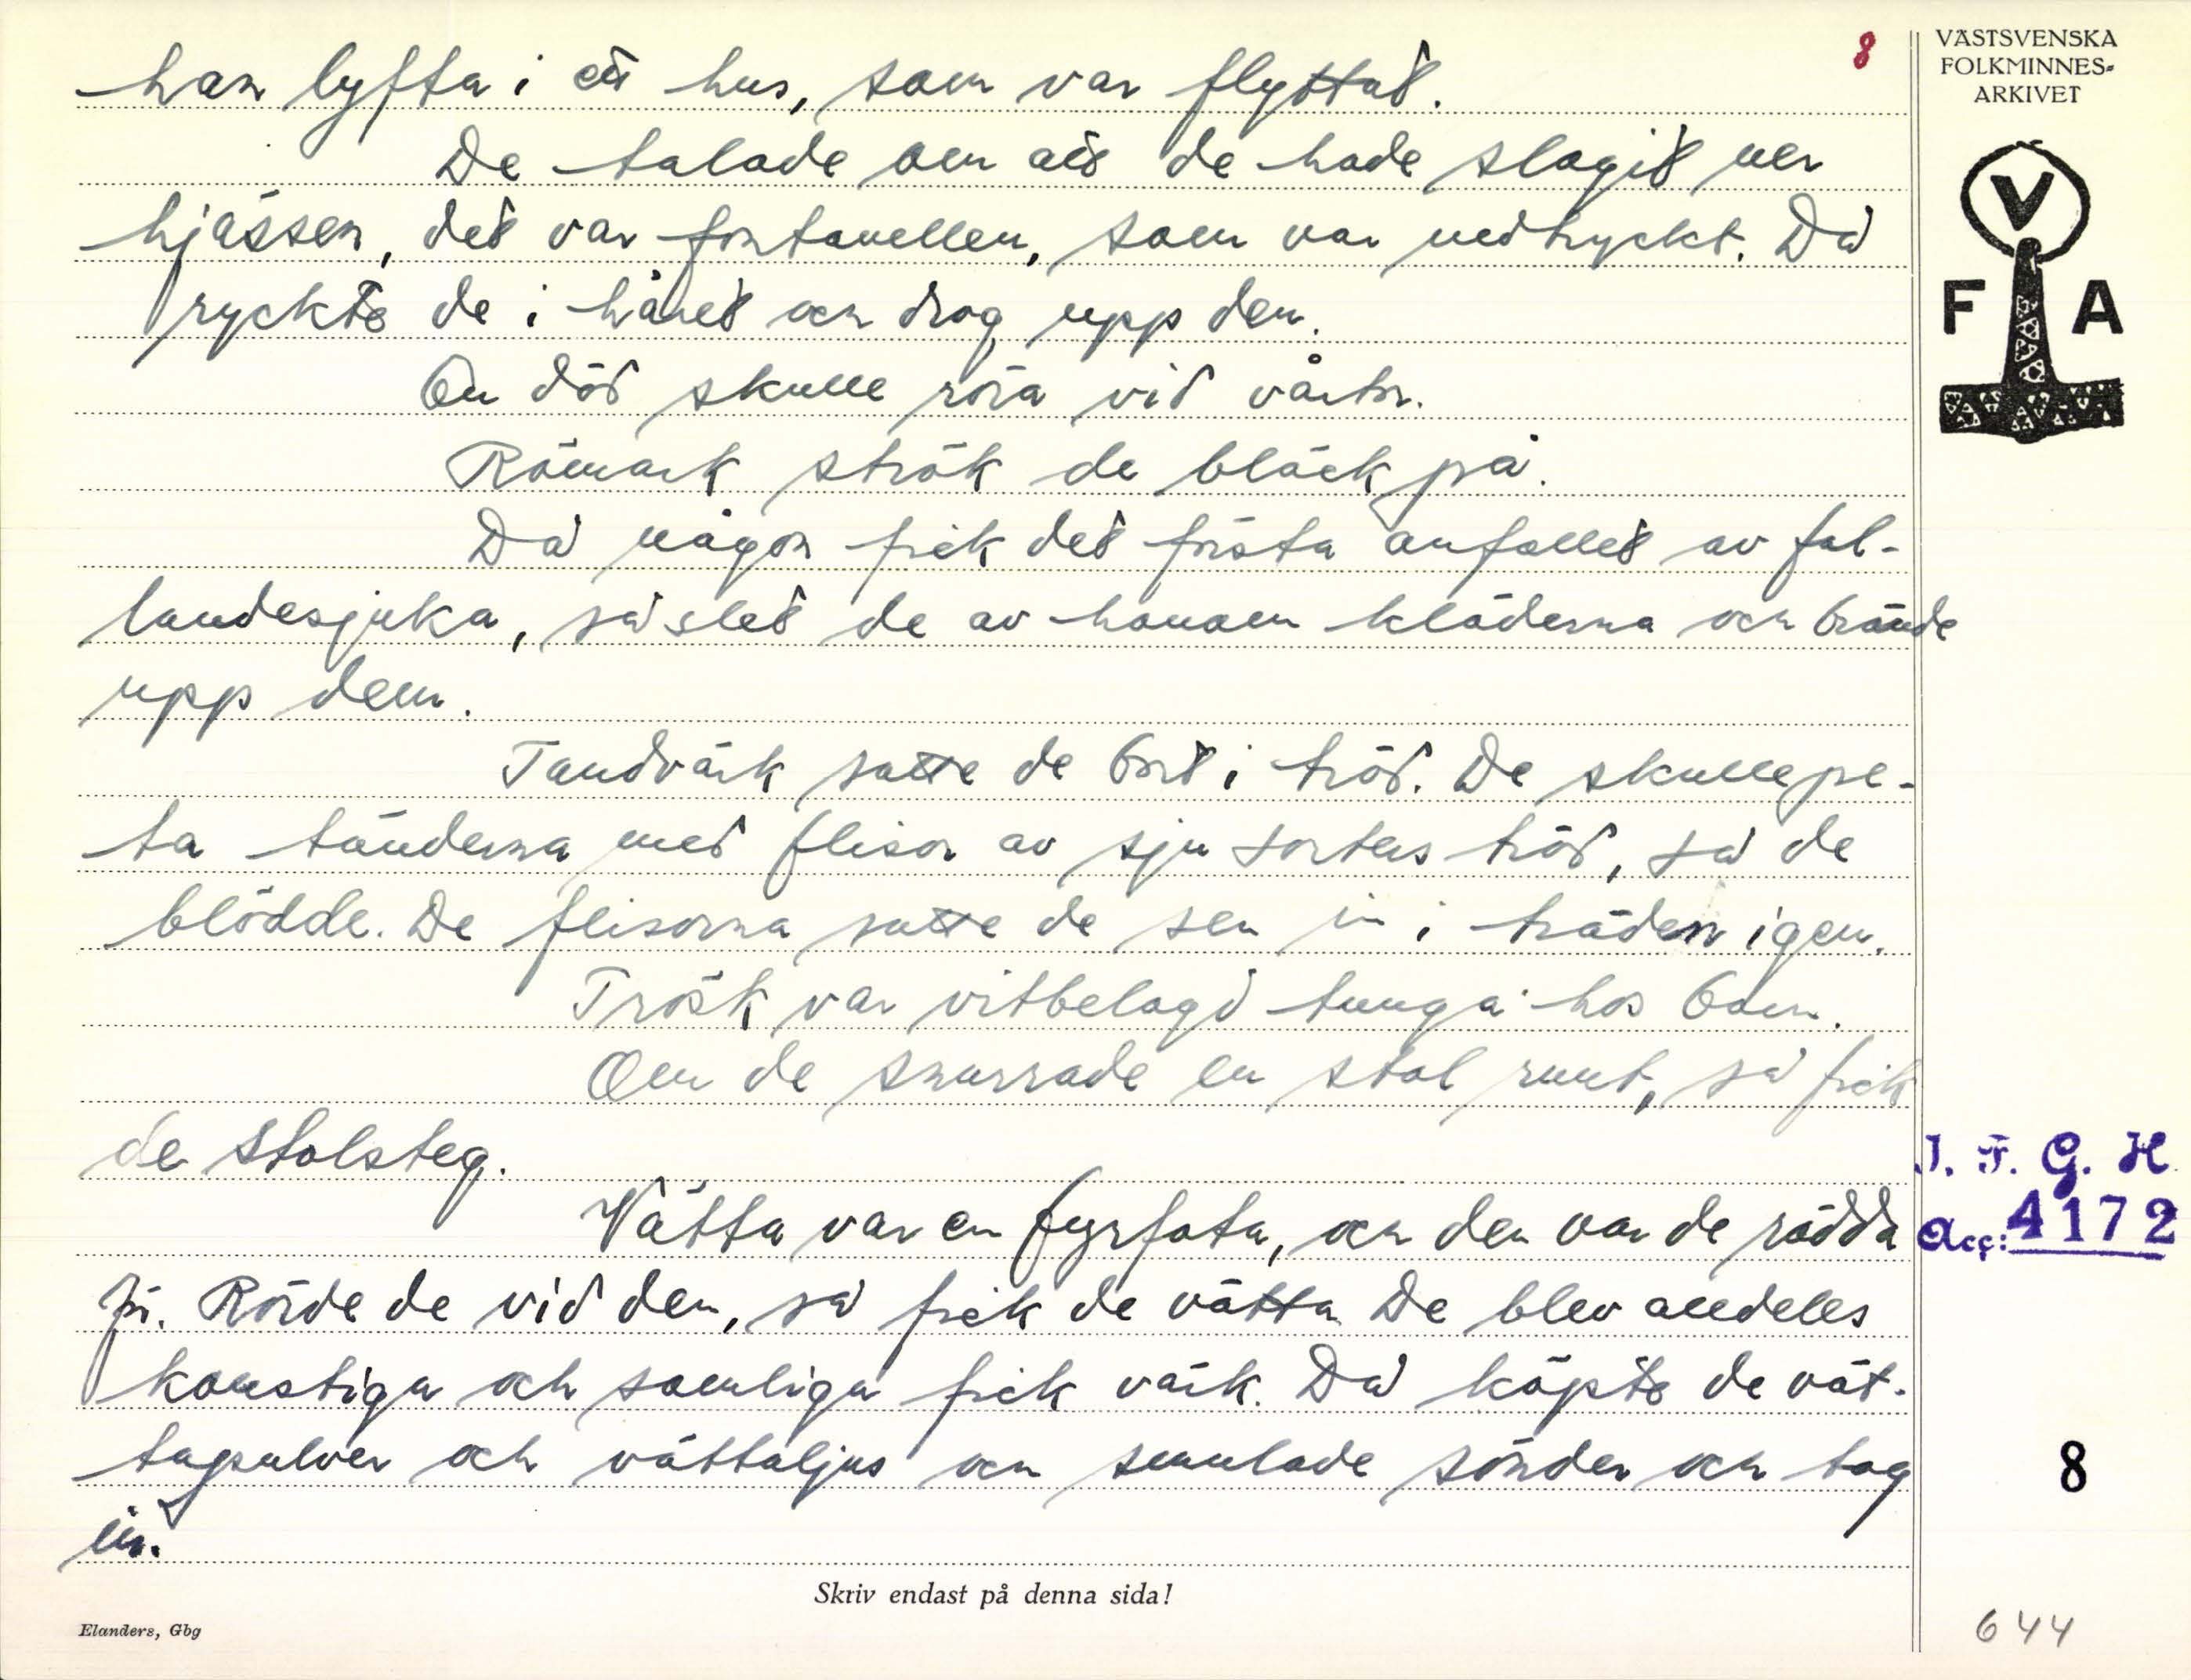 8
VÄSTSVENSKA
FOLKMINNES-
ARKIVET
V
F A
han lyfta i ett hus, som var flyttat.
De talade om att de hade slagit ner
hjässen, det var fontanellen, som var nedtryckt. Då
ryckte de i håret och drog upp den.
En död skulle röra vid vårtor.
Römark strök de bläck på.
Då någon fick det första anfallet av fal-
landesjuka, så slet de av honom kläderna och brände
upp dem.
Tandvärk satte de bort i träd. De skulle pe-
ta tänderna med flisor av sju sorters träd, så de
blödde. De flisorna satte de sen in i träden igen.
Trösk var vitbelagd tunga hos barn.
Om de snurrade en stol runt, så fick
de stolsteg.
Vätta var en fyrfota, och den var de rädda
för. Rörde de vid den, så fick de vätta. De blev alldeles
konstiga och somliga fick värk. Då köpte de vät-
tapulver och vättaljus och smulade sönder och tog
in.
I. F. G. H.
Acc: 4172
8
Skriv endast på denna sida!
Elanders, Gbg
644